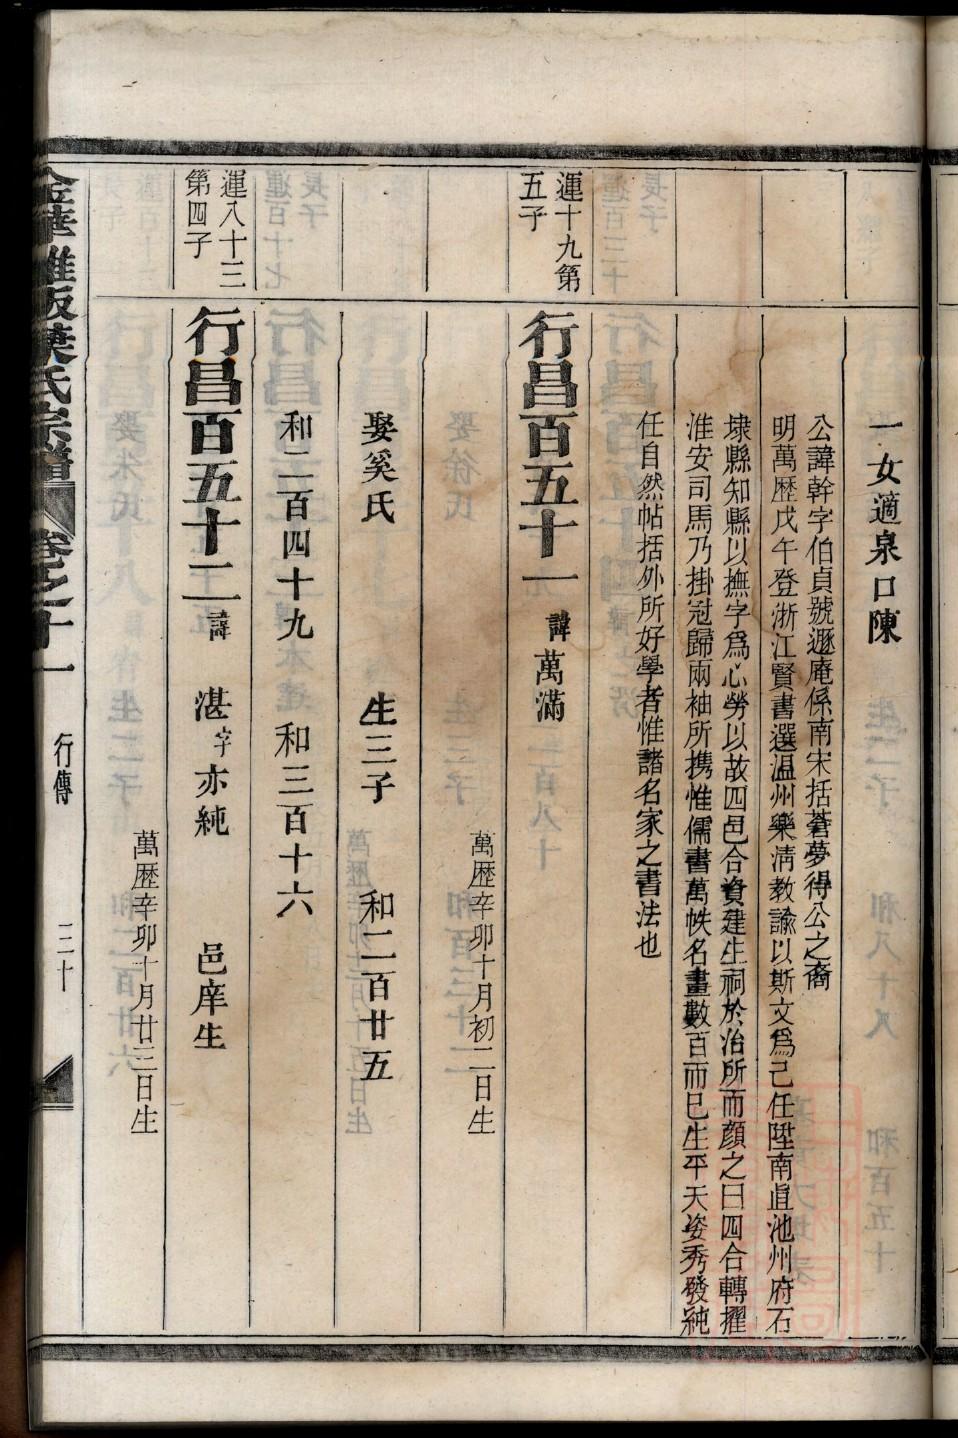 一女適泉口陳
公諱幹字伯貞號遯庵係南宋括蒼夢得公之裔
明萬歷戊午登浙江賢書選温州樂淸教諭以斯文爲己任陞南直池州府石
埭縣知縣以撫字爲心勞以故四邑合資建生祠於治所而顔之曰四合轉擢
淮安司馬乃掛冠歸兩袖所携惟儒書萬帙名畫數百而已生平天姿秀發純
任自然帖括外所好學者惟諸名家之書法也
運十九第
五子
行昌百五十一 諱 萬滿
萬歷辛卯十月初二日生
娶奚氏 生三子 和二百廿五
和二百四十九 和三百十六
運八十三
第四子
行昌百五十二 諱 湛 字 亦純 邑庠生
萬歷辛卯十月廿三日生
金華雅畈葉氏宗譜 卷之十一 行傳 三十